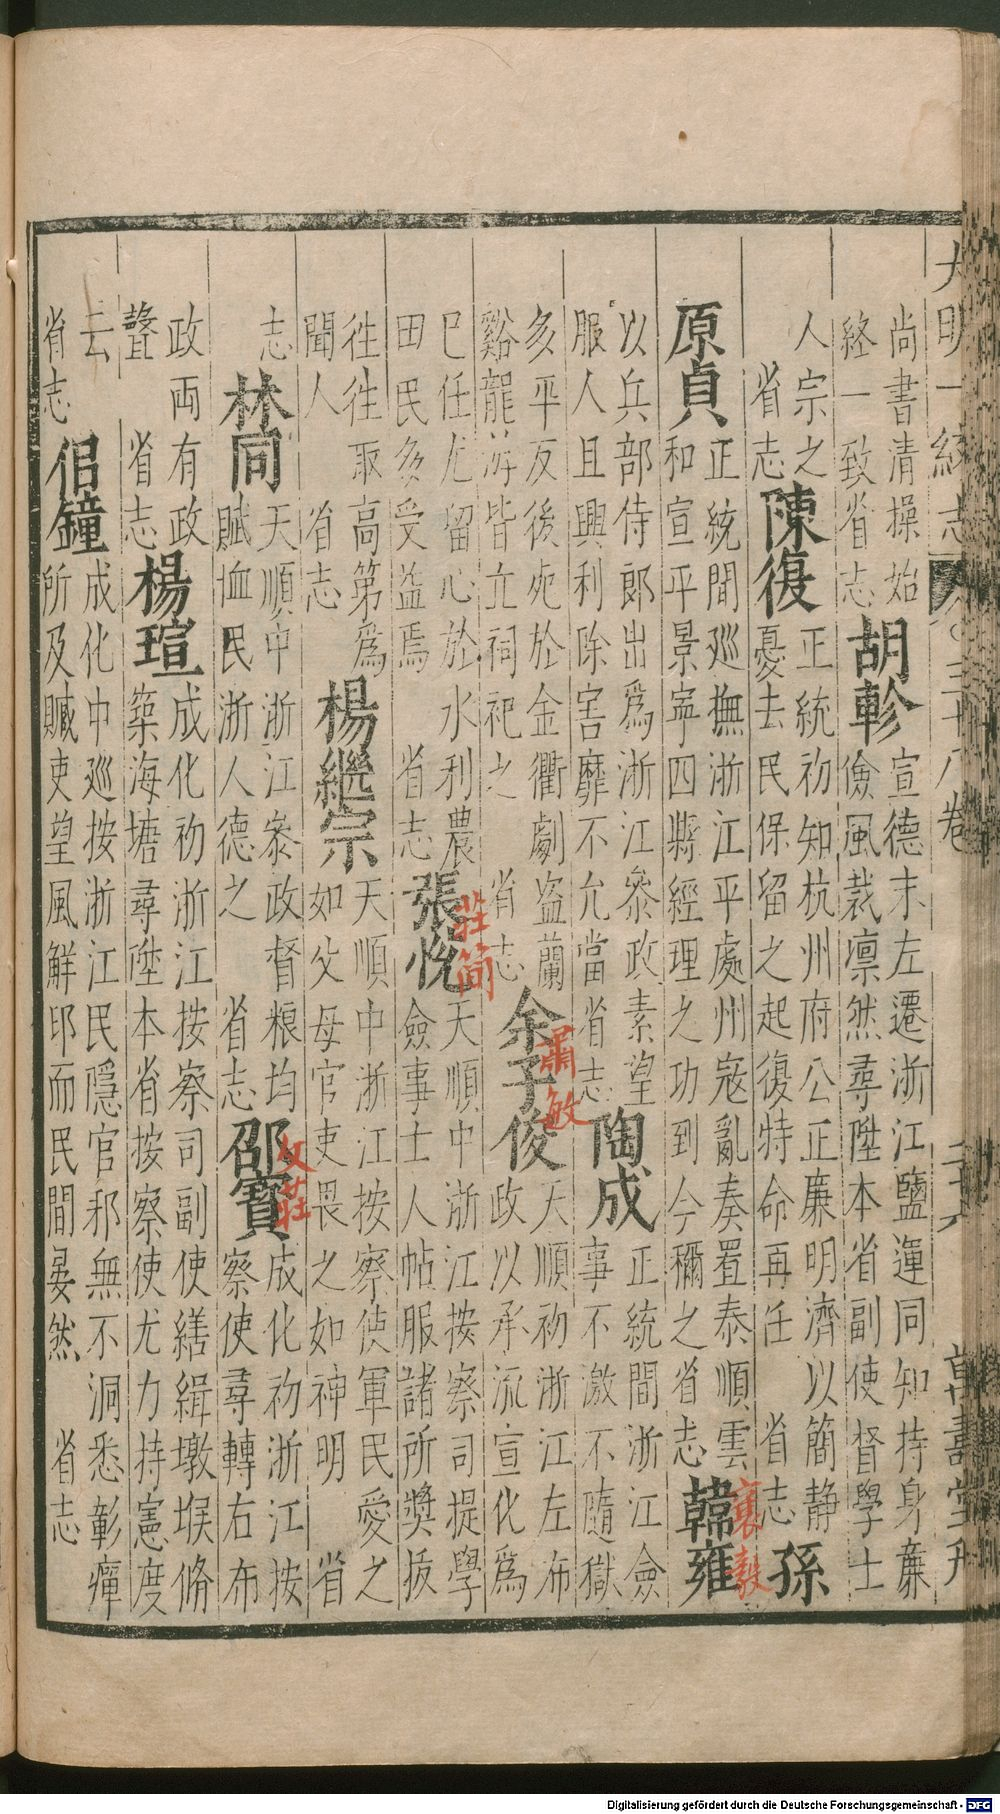 大明一統志 三十八卷 二十六 萬壽堂刊
尚書清操始
終一致省志
胡軫
宣德末左遷浙江鹽運同知持身廉
儉風裁凛然尋陞本省副使督學士
人宗之
省志
陳復
正統初知杭州府公正廉明濟以簡静
憂去民保留之起復特命再任 省志
孫
原貞
正統間巡撫浙江平處州冦亂奏置泰順雲
和宣平景寧四縣經理之功到今穪之省志
韓雍
襄毅
以兵部侍郎出爲浙江叅政素望
服人且興利除害靡不允當省志
陶成
正統間浙江僉
事不激不隨獄
多平反後死於金衢劇盗蘭
谿龍游皆立祠祀之 省志
余子俊
肅敏
天順初浙江左布
政以承流宣化爲
巳任尤留心於水利農
田民多受益焉 省志
張悅
莊簡
天順中浙江按察司提學
僉事士人帖服諸所奬拔
徃徃取高第爲
聞人 省志
楊繼宗
天順中浙江按察使軍民愛之
如父母官吏畏之如神明 省
志
林同
天順中浙江叅政督粮均
賦恤民浙人德之 省志
邵寶
文莊
成化初浙江按
察使尋轉右布
政両有政
聲 省志
楊瑄
成化初浙江按察司副使繕緝墩堠脩
築海塘尋陞本省按察使尤力持憲度
云
省志
侣鐘
成化中巡按浙江民隠官邪無不洞悉彰癉
所及贓吏望風觧印而民間晏然 省志
Digitalisierung gefördert durch die Deutsche Forschungsgemeinschaft - DFG